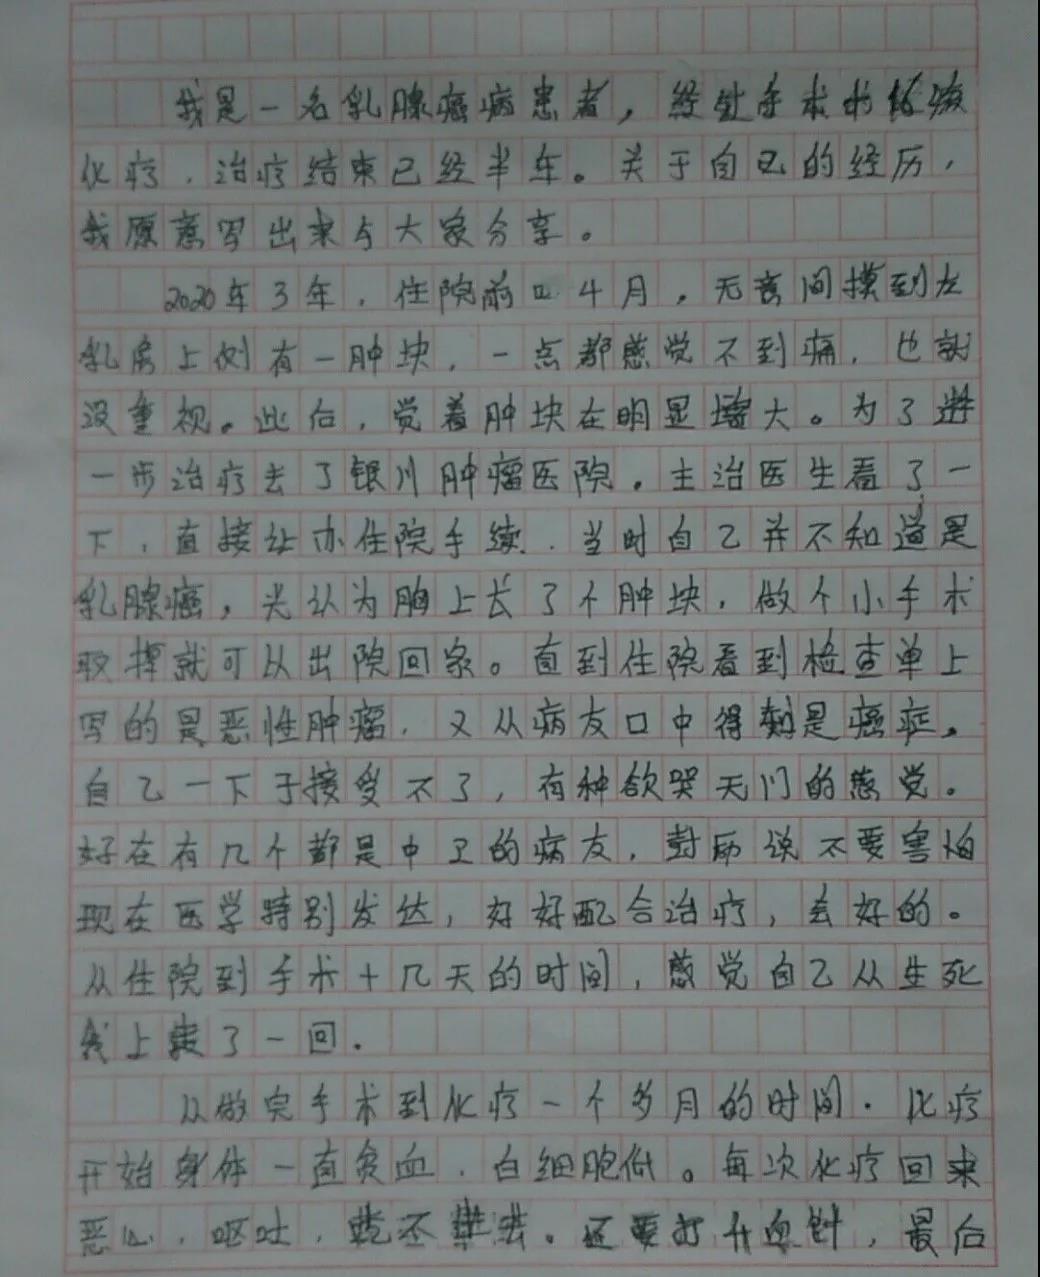 我是一名乳腺癌病患者，经过手术的
化疗，治疗结束已经半年。关于自己的经历，
我愿意写出来与大家分享。
2020年3年，住院前四4月，无意间摸到左
乳房上侧有一肿块，一点都感觉不到痛，也就
没重视。此后，觉着肿块在明显增大。为了进
一步治疗去了银川肿瘤医院。主治医生看了一
下，直接让办住院手续。当时自己并不知道是
乳腺癌，光认为胸上长了个肿块，做个小手术
取掉就可以出院回家。直到住院看到检查单上
写的是恶性肿瘤，又从病友口中得知是癌症。
自己一下子接受不了，有种欲哭无门的感觉。
好在有几个都是中卫的病友，鼓励说不要害怕
现在医学特别发达，好好配合治疗，会好的。
从住院到手术十几天的时间，感觉自己从生死
线上走了一回。
从做完手术到化疗一个多月的时间。化疗
开始身体一直贫血，白细胞低。每次化疗回来
恶心，呕吐，吃不进去。还要打升血针，最后